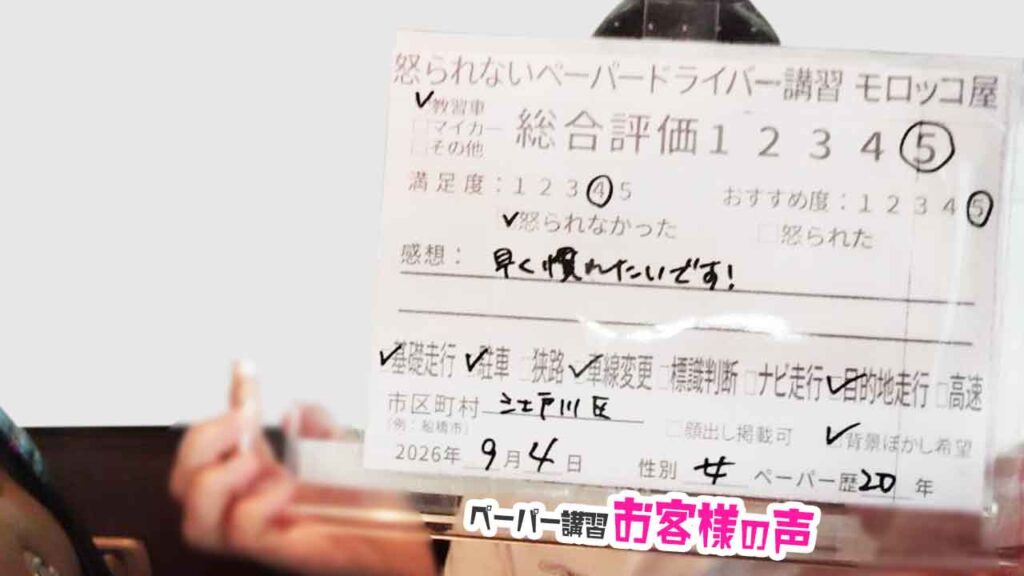 怒られないペーパードライバー講習 モロッコ屋
✓教習車
□マイカー
□その他
総合評価 1 2 3 4 ⑤
満足度：1 2 3 ④ 5
おすすめ度：1 2 3 4 ⑤
✓怒られなかった □怒られた
感想： 早く慣れたいです!
✓基礎走行 ✓駐車 □狭路 ✓車線変更 □標識判断 □ナビ走行 ✓目的地走行 □高速
市区町村 江戸川区
(例：船橋市)
□顔出し掲載可 ✓背景ぼかし希望
2026年 9月 4日 性別 女 ペーパー歴 20年
ペーパー講習 お客様の声